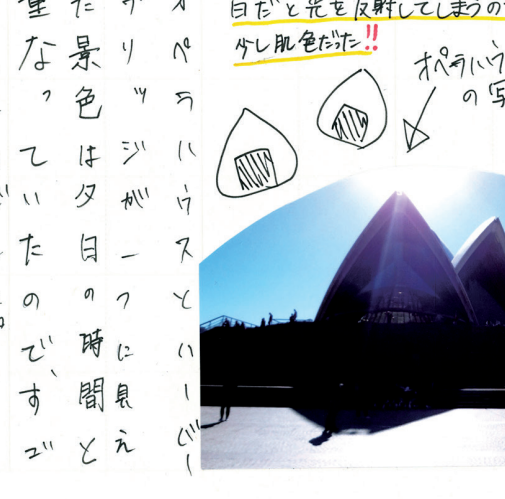 白だと光を反射してしまうの
少し肌色だった!!
オペラハウ
の写
オペラハウスとハーバー
ブリッジが一つに見え
た景色は夕日の時間と
重なっていたので、すご